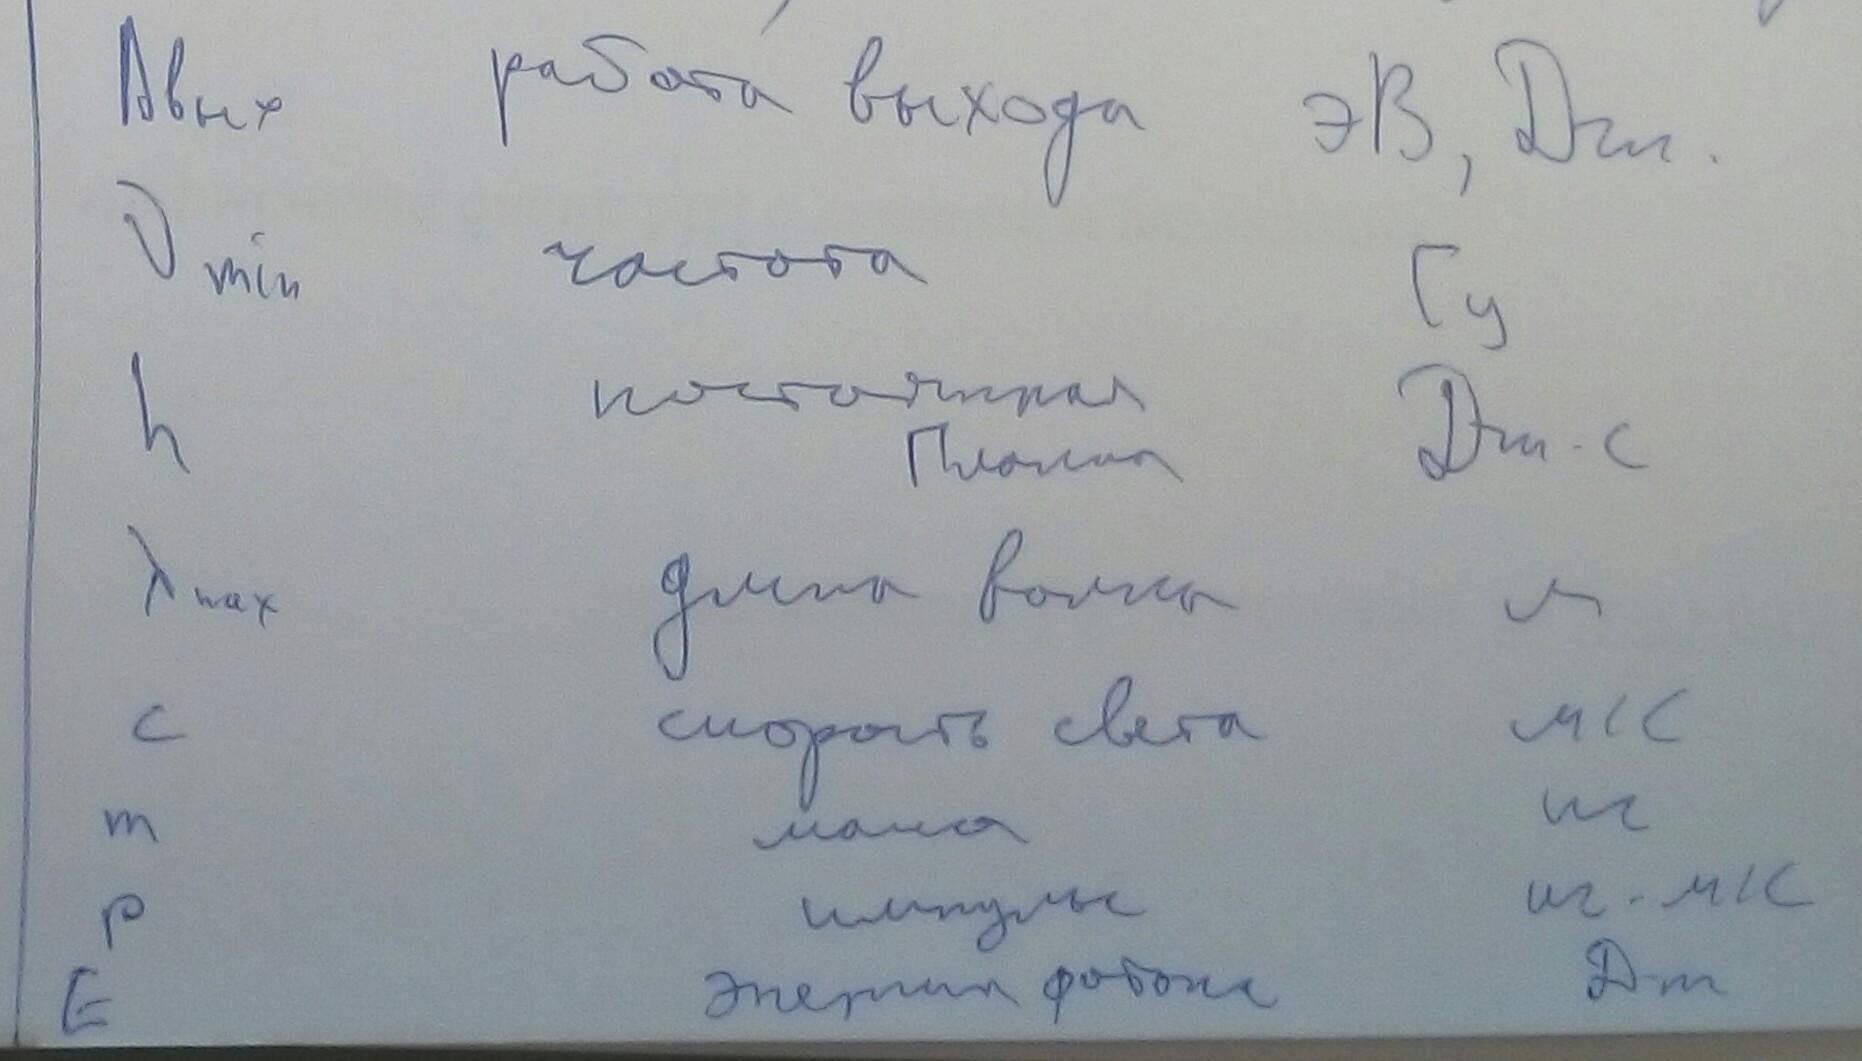 Aвых работа выхода эВ, Дж.
ν min частота Гц
h постоянная
Планка Дж·с
λ max длина волны м
c скорость света м/с
m масса кг
p импульс кг·м/с
E энергия фотона Дж